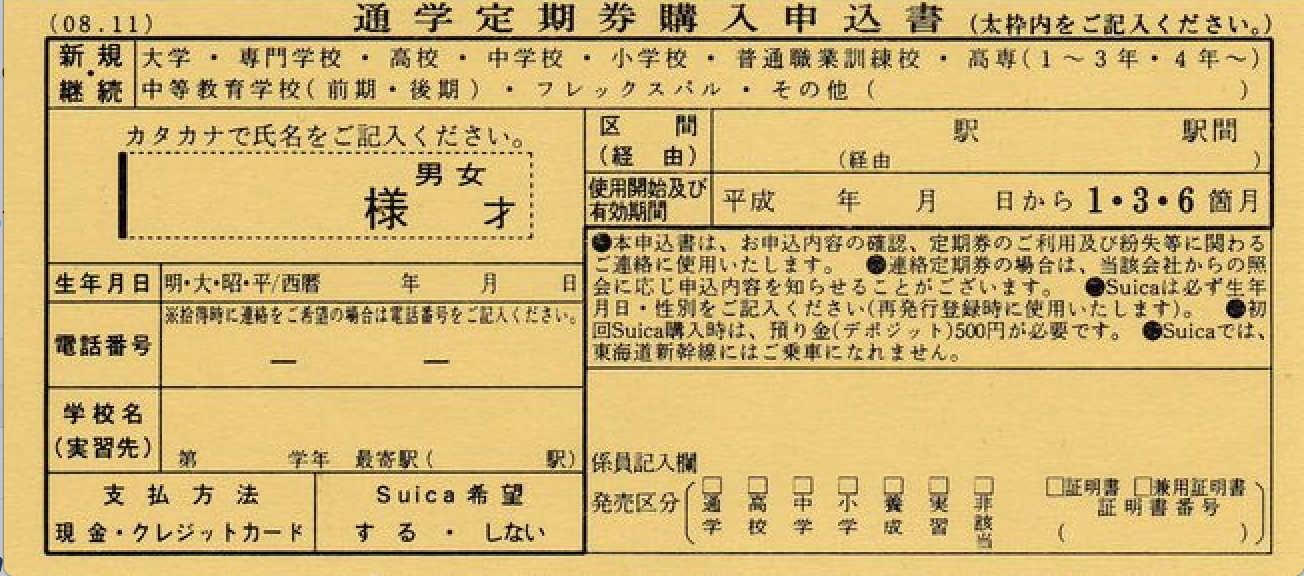 (08.11)
通学定期券購入申込書
(太枠内をご記入ください。)
新規・継続
大学・専門学校・高校・中学校・小学校・普通職業訓練校・高専(1～3年・4年～)
中等教育学校(前期・後期)・フレックスパル・その他( )
カタカナで氏名をご記入ください。
男女
様 才
区間
(経由)
駅 駅間
(経由 )
使用開始及び
有効期間
平成 年 月 日から 1・3・6 箇月
生年月日
明・大・昭・平/西暦 年 月 日
電話番号
※拾得時に連絡をご希望の場合は電話番号をご記入ください。
― ―
学校名
(実習先)
第 学年 最寄駅( 駅)
支払方法
現金・クレジットカード
Suica希望
する・しない
●本申込書は、お申込内容の確認、定期券のご利用及び紛失等に関わる
ご連絡に使用いたします。 ●連絡定期券の場合は、当該会社からの照
会に応じ申込内容を知らせることがございます。 ●Suicaは必ず生年
月日・性別をご記入ください(再発行登録時に使用いたします)。 ●初
回Suica購入時は、預り金(デポジット)500円が必要です。 ●Suicaでは、
東海道新幹線にはご乗車になれません。
係員記入欄
発売区分
□通学 □高校 □中学 □小学 □養成 □実習 □非該当
□証明書 □兼用証明書
証明書番号
( )